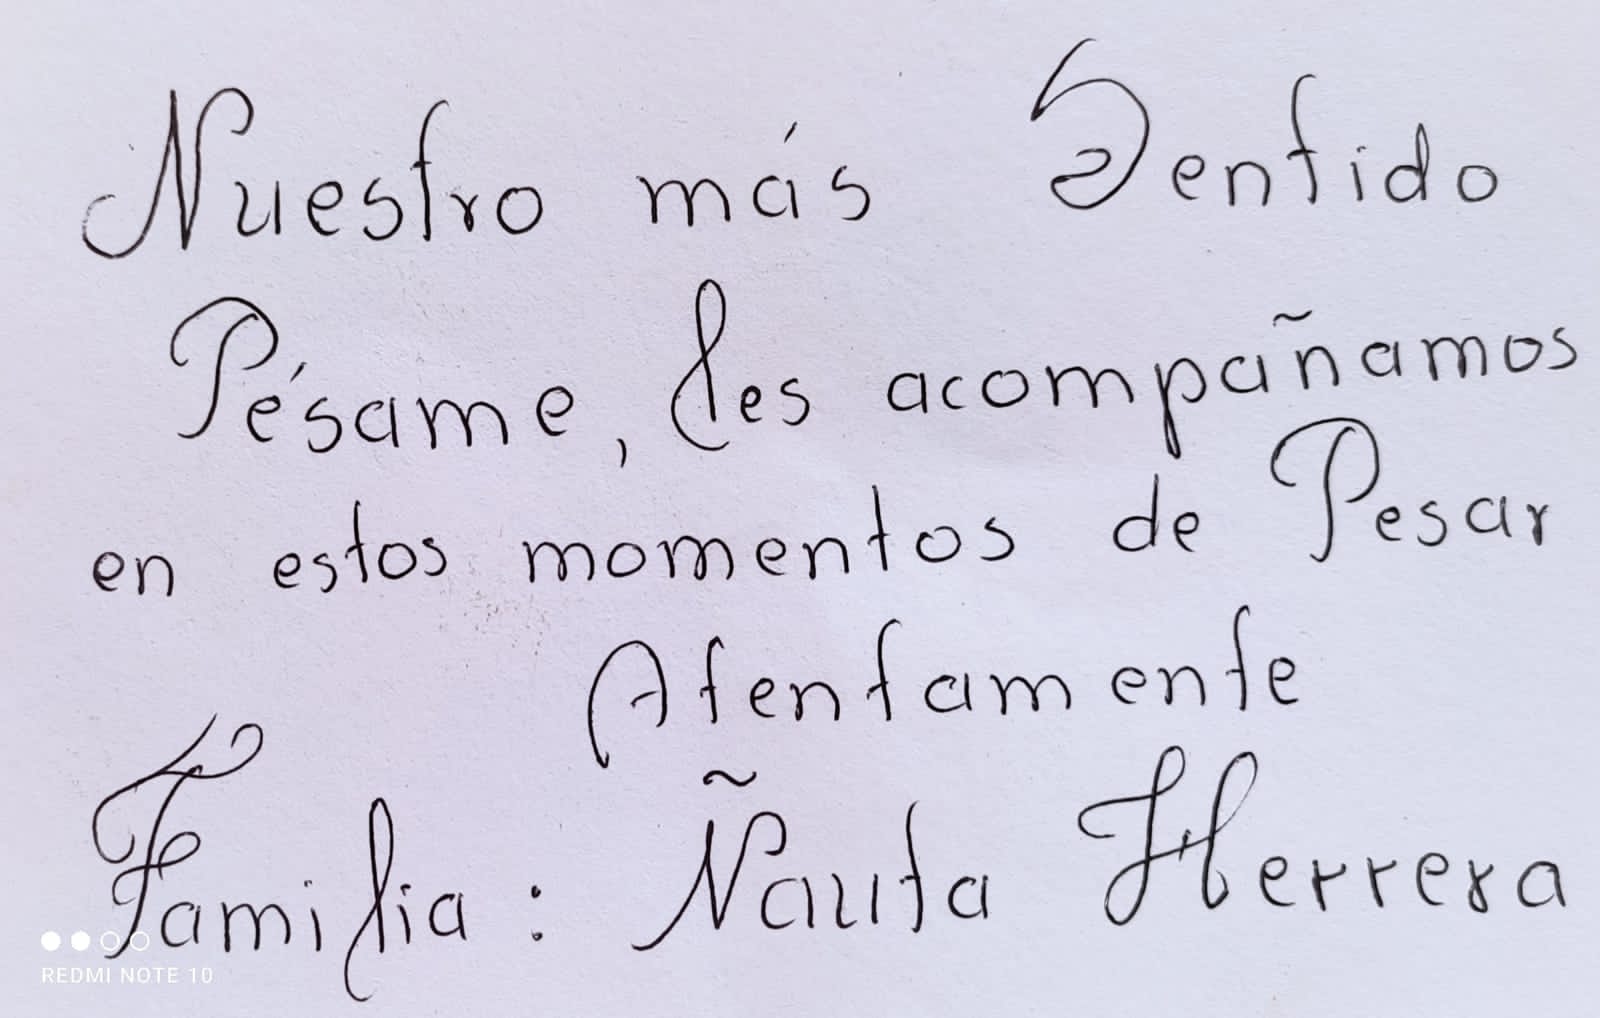 Nuestro más Sentido
Pésame, les acompañamos
en estos momentos de Pesar
Atentamente
Familia: Ñauta Herrera
REDMI NOTE 10